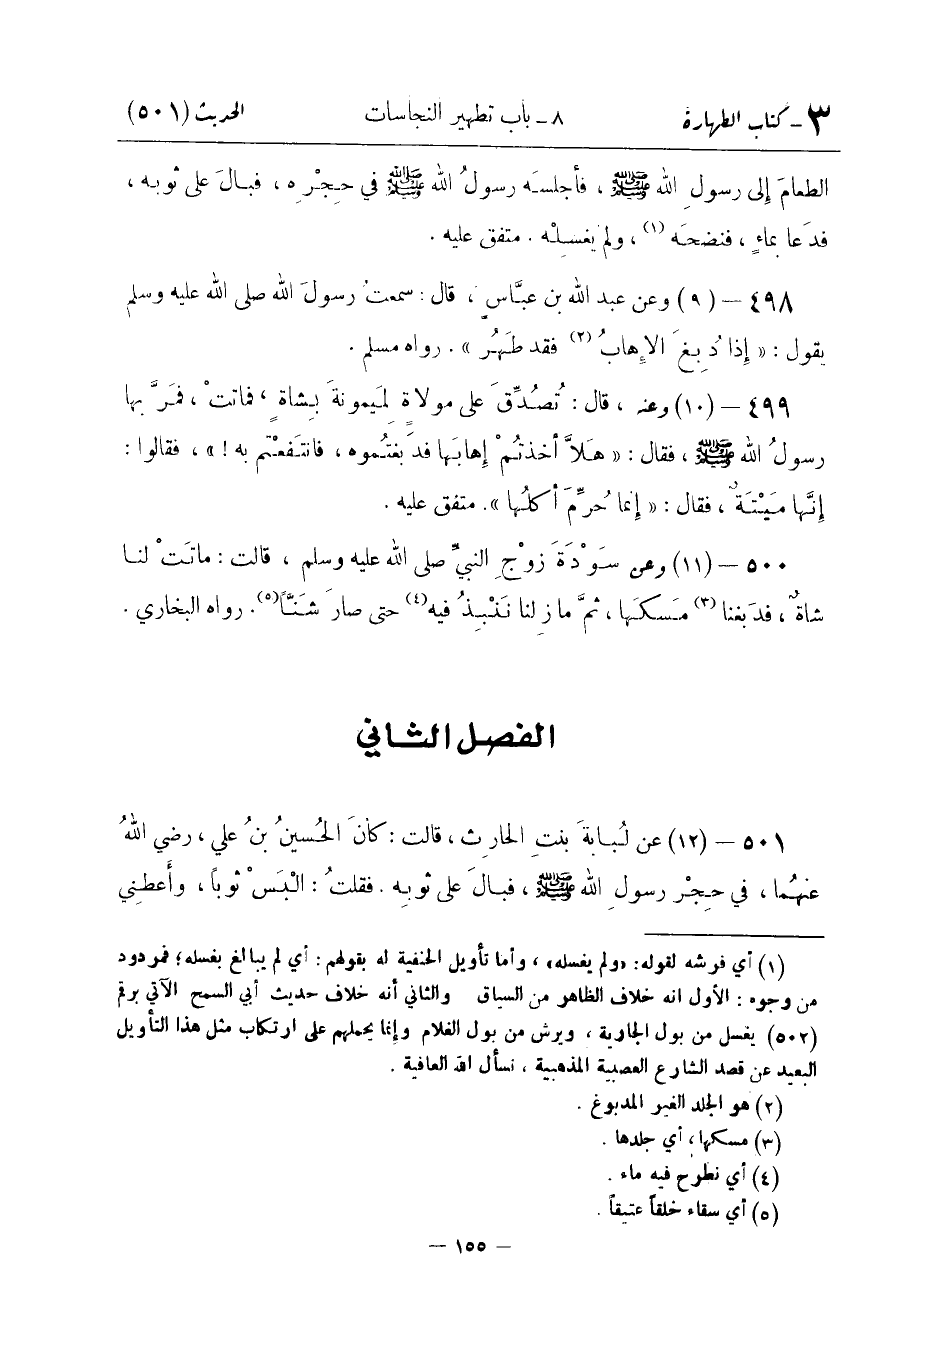 ٣ - كتاب الطهارة ٨ - باب تطهير النجاسات الحديث (٥٠١)
الطعامَ إلى رسولِ الله ﷺ ، فأجلسَه رسولُ الله ﷺ في حِجْرِه ، فبالَ على ثوبه ،
فدَعا بماءٍ ، فنضحَه (١) ، ولم يغسِلْه . متفق عليه .
٤٩٨ – ( ٩ ) وعن عبد الله بن عبَّاس ، قال : سمعتُ رسولَ الله صلى الله عليه وسلم
يقول : « إذا دُبِغَ الإهابُ (٢) فقد طَهُرَ » . رواه مسلم .
٤٩٩ – (١٠) وعنه ، قال : تُصُدِّقَ على مولاةٍ لميمونةَ بِشاةٍ ، فماتتْ ، فمرَّ بها
رسولُ الله ﷺ ، فقال : « هلاَّ أخذتُمْ إهابَها فدَبغتُموه ، فانتَفعْتم به ! » ، فقالوا :
إنَّها مَيْتَةٌ ، فقال : « إنما حُرِّمَ أكلُها ». متفق عليه .
٥٠٠ – (١١) وعن سَوْدَةَ زوْجِ النبيِّ صلى الله عليه وسلم ، قالت : ماتَتْ لنا
شاةٌ ، فدَبغنا (٣) مَسكَها ، ثمَّ مازِلنا نَنْبِذُ فيه(٤) حتى صارَ شَنّاً(٥). رواه البخاري .
الفصل الثاني
٥٠١ – (١٢) عن لُبابةَ بنتِ الحارِث ، قالت : كانَ الحُسينُ بنُ علي ، رضي اللهُ
عنهُما ، في حِجْر رسولِ الله ﷺ ، فبالَ على ثوبِه . فقلتُ : الْبَسْ ثوباً ، وأَعطِني
(١) أي فرشه لقوله: «ولم يغسله» ، وأما تأويل الحنفية له بقولهم : أي لم يبالغ بغسله؛ فمردود
من وجوه : الأول انه خلاف الظاهر من السياق والثاني أنه خلاف حديث أبي السمح الآتي برقم
(٥٠٢) يغسل من بول الجارية ، ويرش من بول الغلام وإنما يحملهم على ارتكاب مثل هذا التأويل
البعيد عن قصد الشارع العصبية المذهبية ، نسأل الله العافية .
(٢) هو الجلد الغير المدبوغ .
(٣) مسكها، أي جلدها .
(٤) أي نطرح فيه ماء .
(٥) أي سقاء خلقاً عتيقاً .
– ١٥٥ –